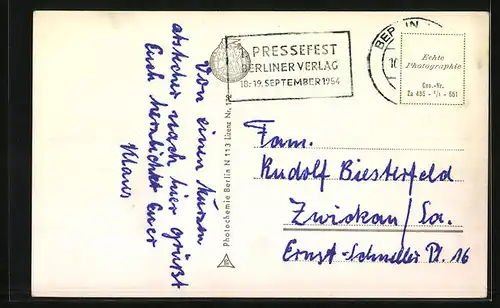 PRESSEFEST
BERLINER VERLAG
18.-19. SEPTEMBER 1954
BERLIN
Echte
Photographie
Gen.-Nr.
Za 435 - 1/1 - 661
Von einem kurzen
Abstecher nach hier grüßt
Euch herzlichst Euer
Klaus
Photochemie Berlin N 113 Lizenz Nr.
Fam.
Rudolf Biesterfeld
Zwickau/Sa.
Ernst-Schneller Pl. 16